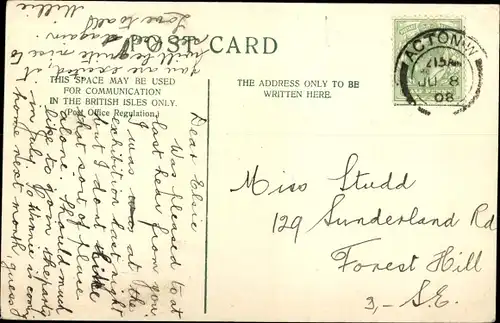 POST CARD
THIS SPACE MAY BE USED
FOR COMMUNICATION
IN THE BRITISH ISLES ONLY.
(Post Office Regulation.)
THE ADDRESS ONLY TO BE
WRITTEN HERE.
ACTON.W
JU 8
08
Miss Studd
129 Sunderland Rd
Forest Hill
3, S.E.
Dear Elsie
Was pleased to at
last hear from you
I was at the
exhibition last night
but I dont like
that sort of place
alone. Should much
like to join the party
in July.
home next month, guess
you are excited, it
will be quite nice to
see again.
Love to all
Millie